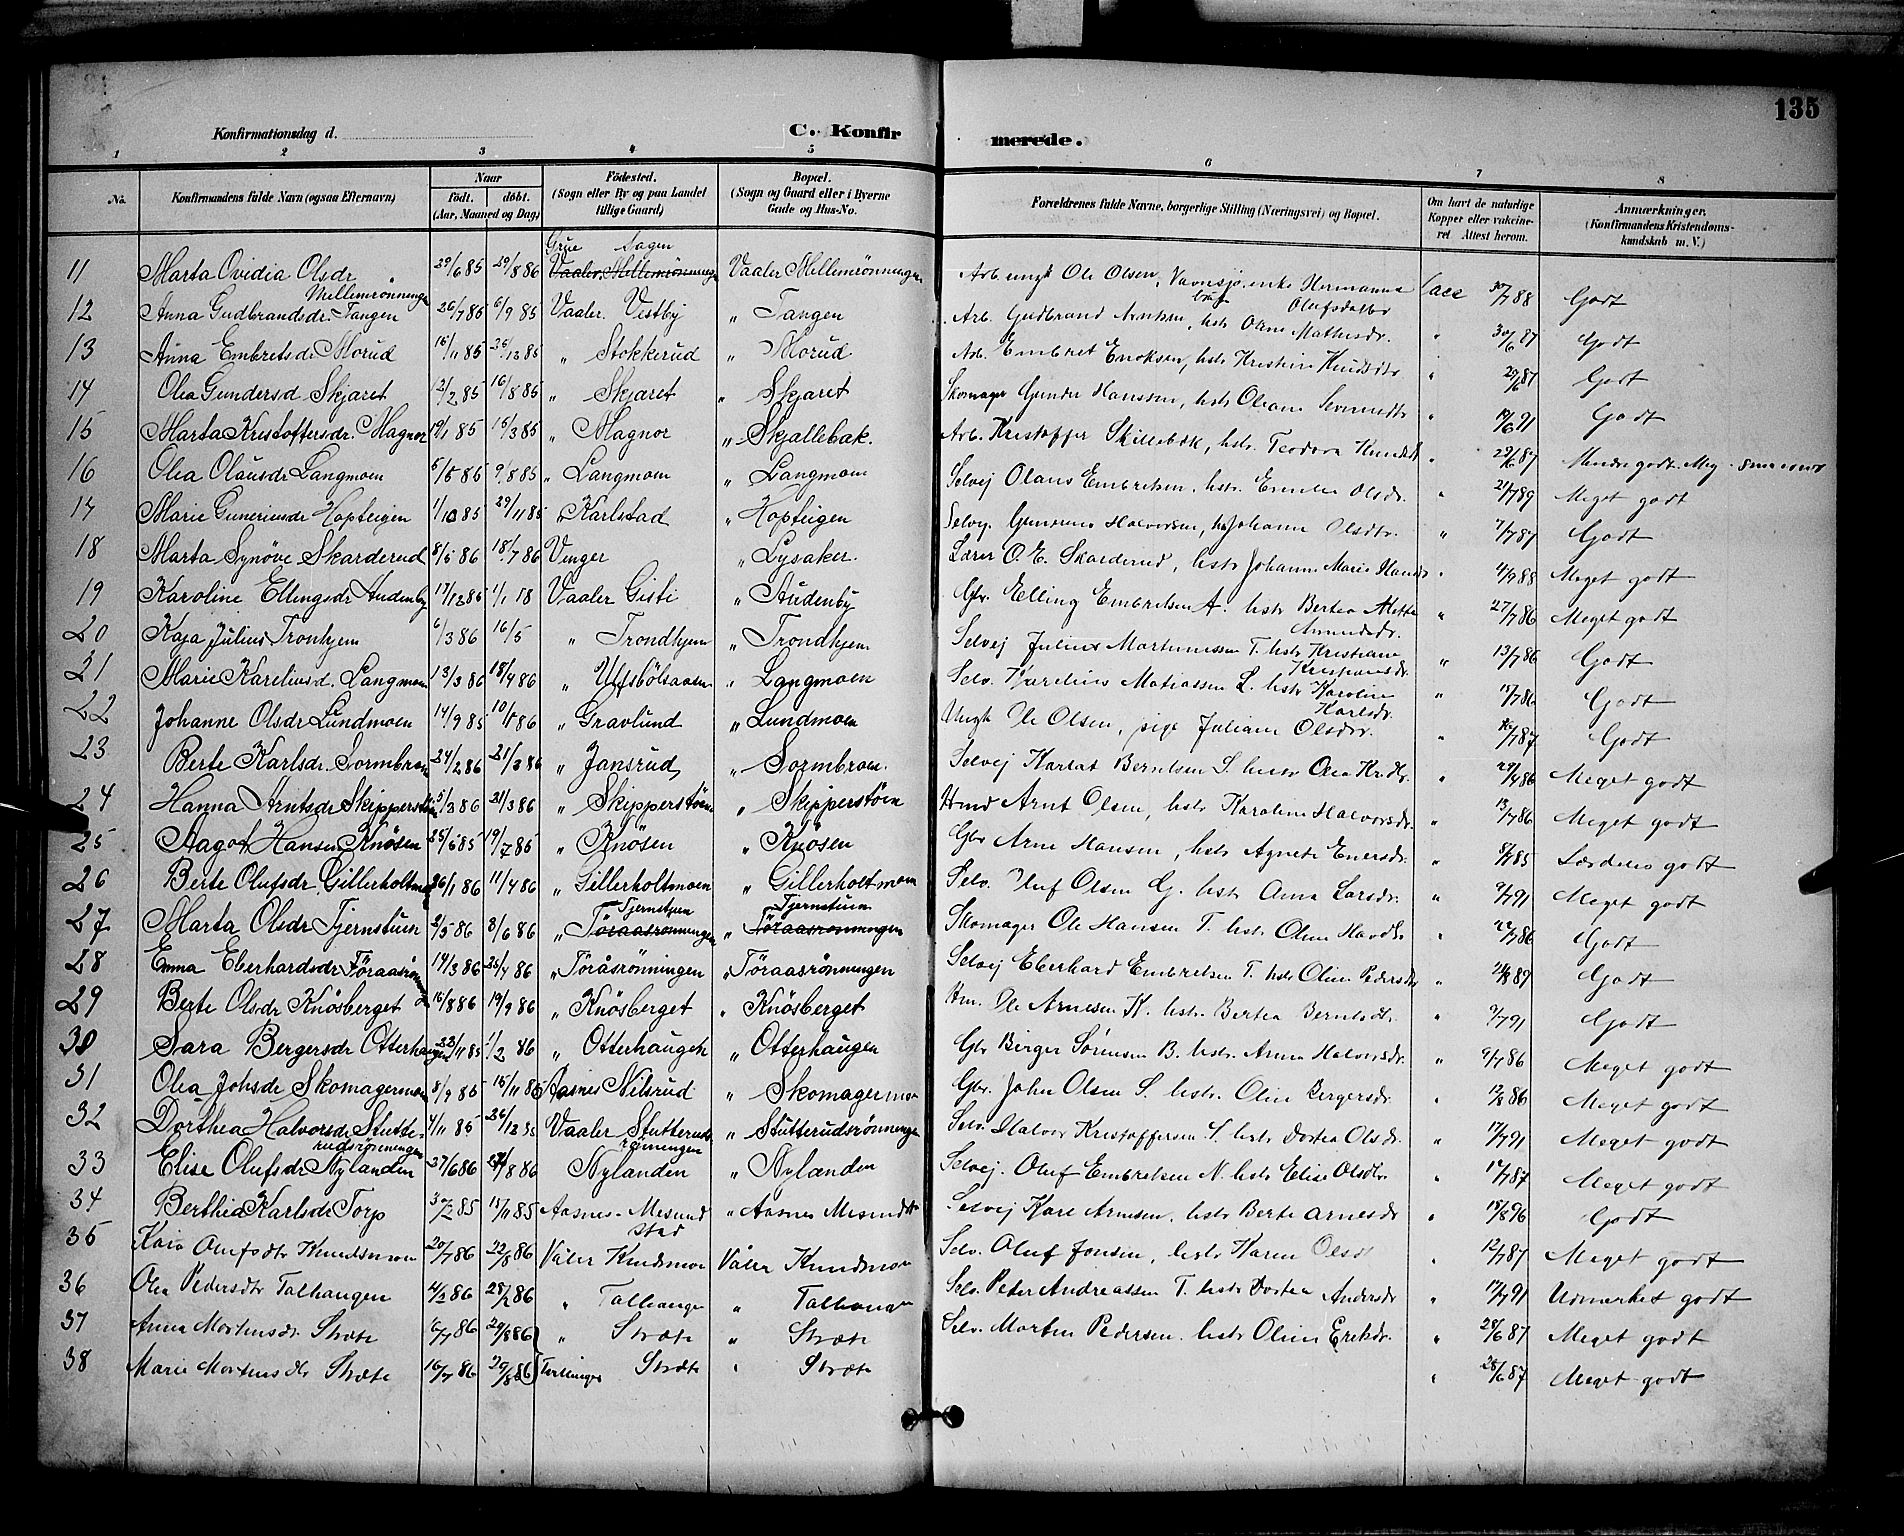 135
Konfirmationsdag d.
C. Konfirmerede.
1 2 3 4 5 6 7 8
No. Konfirmandens fulde Navn (ogsaa Efternavn) Naar födt. döbt. (Aar, Maaned og Dag) Födested. (Sogn eller By og paa Landet tillige Gaard) Bopæl. (Sogn og Gaard eller i Byerne Gade og Hus-No. Forældrenes fulde Navne, borgerlige Stilling (Næringsvei) og Bopæl. Om havt de naturlige Kopper eller vakcineret Attest herom. Anmærkninger. (Konfirmandens Kristendomskundskab m. V.)
11 Marta Ovidia Olsdr. Mellemrönningen 29/6 85 29/8 86 Grue Vaaler, Mellemrönningen Vaaler Mellemrönningen Arb. ungk Ole Olsen, enke Hermanna Olufsdatter 30/7 88 Godt
12 Anna Gudbrandsdr. Tangen 26/7 85 6/9 85 Vaaler Vestby " Tangen Arb. Gudbrand Arntsen, hstr Oline Mathisdr. " 30/6 87 Godt
13 Anna Embretsdr Morud 15/11 85 26/12 85 " Stokkerud " Morud Arb. Embret Eriksen, hstr Kristine Knudsdtr " 29/6 87 Godt
14 Olea Gundersd. Skjaret 12/2 85 16/8 85 " Skjaret " Skjaret Skomager Gunder Hanssen, hstr Oliane " 19/6 91 Godt
15 Marta Kristoffersdr. Magnor 19/1 85 15/3 85 " Magnor " Skjallebak. Arb. Kristoffer Skillebæk, hstr. Teodora " 29/6 87 Mindre godt.
16 Olea Olausdr Langmoen 5/5 85 9/8 85 " Langmoen " Langmoen Selvej Olaus Embretsen, hstr. Olsdr. " 21/7 89 Meget godt
17 Marie Guneriusdr Hopteigen 1/10 85 29/11 85 " Karlstad " Hopteigen Selvej. Gunerius Halvorsen, hs Johanne Olsdtr. " 7/7 87 Godt
18 Marta Synöve Skarderud 8/5 86 18/7 86 Vinger " Lysaker. Lærer O. E. Skarderud, hstr Johanne Marie " 4/9 88 Meget godt
19 Karoline Ellingsdr Audenby 17/12 85 1/1 Vaaler Gisti " Audenby Gbr. Elling Embretsen A. hstr Bertea Mette Amundsdr. " 27/7 86 Meget godt
20 Kaja Julius Tronhjem 6/3 86 16/5 " Trondhjem " Trondhjem Selvej Julius Martinussen T. hstr Kristiane Kristiansdr. " 13/7 86 Godt
21 Marie Kareliusd. Langmoen 13/3 86 18/4 86 " Ulfsbölsaasen " Langmoen Selv. Karelius Matiassen L. hstr Karoline Karlsdr. " 15/7 86 Godt
22 Johanne Olsdr Lundmoen 14/9 85 10/1 86 " Gravlund " Lundmoen Ungk Ole Olsen, pige Juliane Olsdr. " 87 Godt
23 Berte Karlsdr. Sormbroen 24/2 86 21/3 86 " Jansrud " Sormbroen. Selvej Karl Berntsen S. hustr Olea " 29/4 86 Meget godt
24 Hanna Arntsdr Skipperstöen 5/3 86 21/3 86 " Skipperstöen " Skipperstöen Hmd Arnt Olsen, hstr Karoline Halvorsdr. " 13/7 86 Meget godt
25 Aagot Hansen Knösen 25/5 85 19/7 85 " Knösen " Knösen Gbr Arne Hansen, hstr Agnete Enersdr. " 85 Særdeles godt
26 Berte Olufsdr. Gillerholtmoen 26/1 86 11/4 86 " Gillerholtmoen " Gillerholtmoen Selv. Oluf Olsen G. hstr Anna Larsdr. " 9/7 91 Meget godt
27 Marta Olsdr Tjernstuen 2/5 86 8/6 86 " Tjernstuen Töraasrönningen " Tjernstuen Töraasrönningen Skomager Ole Hansen T. hstr Oline " 86 Godt
28 Emma Eberhardsdr Töraasrönningen 14/3 86 26/4 86 " Töråsrönningen " Töraasrönningen Selvej Eberhard Embretsen T. hstr Oline Pedersdtr " 87 Godt
29 Berte Olsdr Knösberget 15/8 86 19/9 86 " Knösberget " Knösberget Hm. Ole Arnesen K. hstr Bertea Berntsdtr " 9/7 91 Godt
30 Sara Bergersdr Otterhaugen 23/11 85 1/2 86 " Otterhaugen " Otterhaugen Gbr Birger Sörensen B. hstr Anne Halvorsdr. " 9/7 86 Meget godt
31 Olea Johsdr Skomagermoen 8/9 85 15/11 85 Aasnes Nilsrud " Skomagermoen Gbr. John Olsen S. hstr. Oline Bergersdr " 12/8 86 Meget godt
32 Dorthea Halvorsdr Stutterudsrönningen 4/11 85 26/12 85 Vaaler Stutterudsrönningen " Stutterudsrönningen Selv. Halvor Kristoffersen S. hstr Dortea Olsdr. " 17/7 91 Meget godt
33 Elise Olufsdr Nylanden 27/6 86 8 86 Nylanden " Nylanden Selvej. Oluf Embretsen N. hstr Elise Olsdtr. " 17/7 87 Meget godt
34 Berthea Karlsdr Torp 3/2 85 15/11 85 Aasnes - Mesundstad " Aasnes Selvej Kare Arnesen, hstr Berte Arnesdr " 18/8 96 Godt
35 Olufsdtr Knudsmoen 20/7 86 22/8 86 Våler Knudsmoen Våler Knudsmoen Selv. Oluf Jonsen, hstr Karen Olsdtr " 12/7 87 Meget godt
36 Olea Pedersdtr Talhaugen 4/2 86 28/2 86 " Talhaugen " Talhaugen Selv. Peter Andreassen T. hstr Dortea Andersdr " 17/7 91 Udmærket godt
37 Anna Mortensdr Stræte 16/7 86 29/8 86 " Stræte " Stræte Selv. Morten Pedersen. hstr Oline Eriksdr. " 28/6 87 Meget godt
38 Marie Mortensdtr Stræte 16/7 86 29/8 86 Tvillinger Stræte " Stræte " 28/6 87 Meget godt